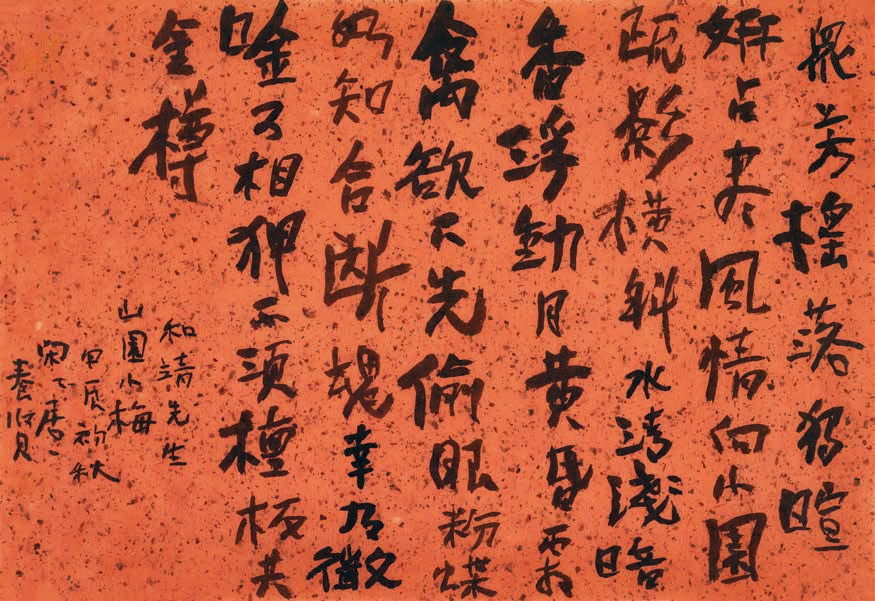 眾芳搖落独暄
妍占盡風情向小園
疏影橫斜水清淺暗
香浮動月黃昏霜
禽欲下先偷眼粉蝶
如知合斷魂幸有微
吟可相狎不須檀板共
金樽
和靖先生
山園小梅
甲辰初秋